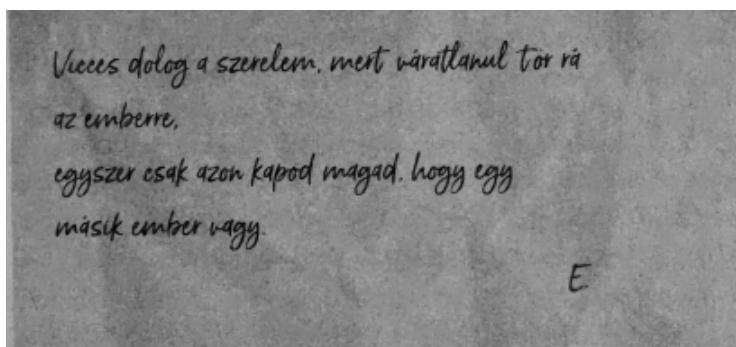 Vicces dolog a szerelem, mert váratlanul tör rá
az emberre,
egyszer csak azon kapod magad, hogy egy
másik ember vagy.
E